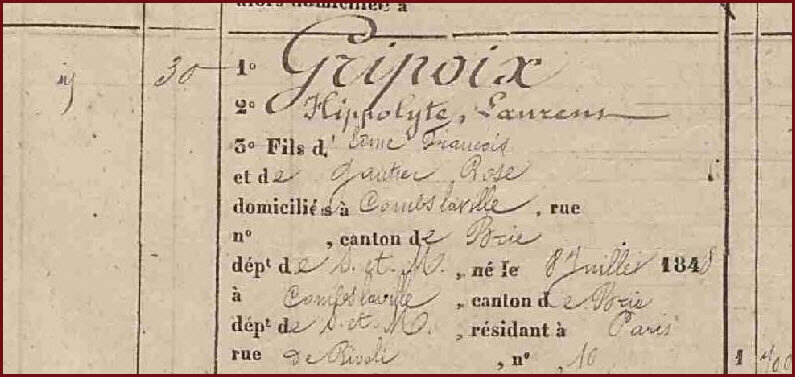 alors domiciliée à
30 1º Gripoix
2º Hippolyte, Laurent
3º Fils d' Edme François
et de Gautier Rose
domiciliés à Combslaville, rue
nº , canton de Brie
dépt de S. et M., né le 8 Juillet 1848
à Combslaville, canton de Brie
dépt de S. et M., résidant à Paris
rue de Rivoli, nº 10 1